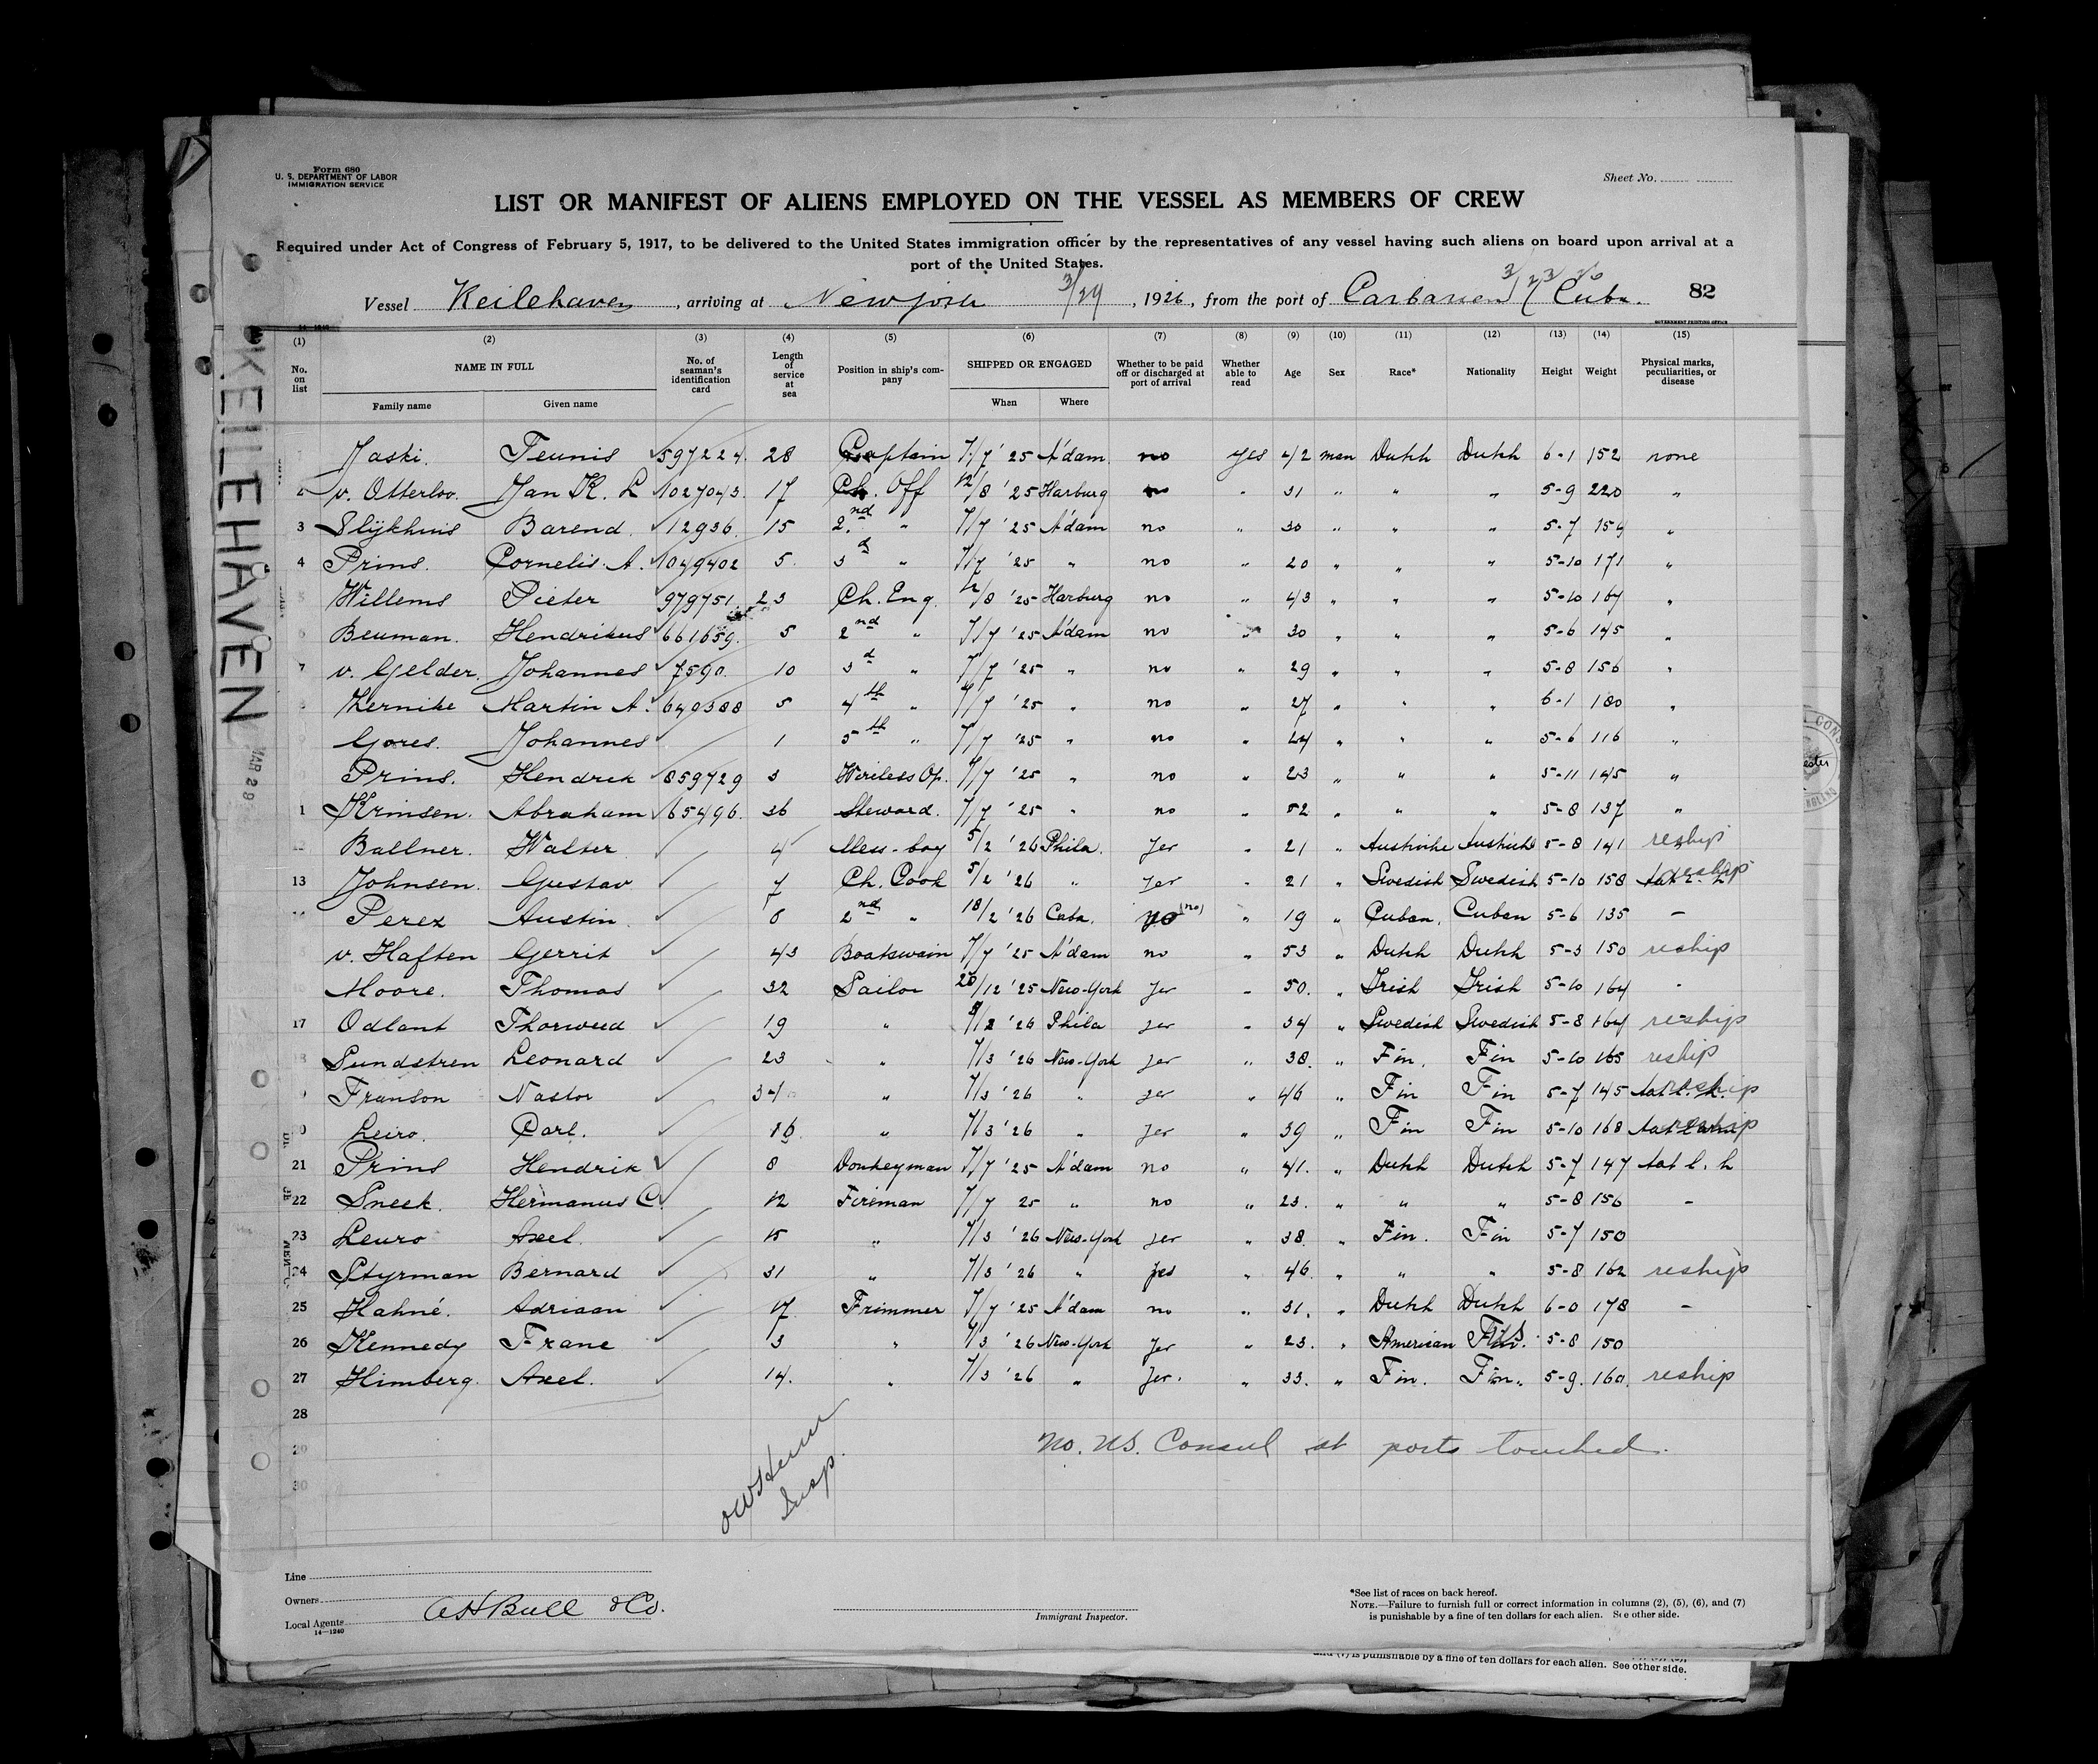 Form 680
U. S. DEPARTMENT OF LABOR
IMMIGRATION SERVICE
Sheet No.
LIST OR MANIFEST OF ALIENS EMPLOYED ON THE VESSEL AS MEMBERS OF CREW
Required under Act of Congress of February 5, 1917, to be delivered to the United States immigration officer by the representatives of any vessel having such aliens on board upon arrival at a
port of the United States.
Vessel Keilehaven, arriving at New York 3/29, 1926, from the port of Cuba. 3/23/26 82
GOVERNMENT PRINTING OFFICE
KEILEHAVEN
MAR 29
(1) (2) (3) (4) (5) (6) (7) (8) (9) (10) (11) (12) (13) (14) (15)
No. on list NAME IN FULL No. of seaman's identification card Length of service at sea Position in ship's company SHIPPED OR ENGAGED Whether to be paid off or discharged at port of arrival Whether able to read Age Sex Race* Nationality Height Weight Physical marks, peculiarities, or disease
Family name Given name When Where
Jaski. Teunis 597224. 28 Captain 7/7 '25 A'dam. no yes 42 man Dutch Dutch 6-1 152 none
v. Otterloo. Jan K. L 1027043. 17 Ch. Off 12/8 '25 Harburg no " 31 " " " 5-9 220 "
3 Slijkhuis Barend. 12936. 15 2.nd " 7/7 '25 A'dam no " 30 " " " 5-7 154 "
4 Prins. Cornelis. A. 1049402 5. 3d " 7/7 '25 " no " 20 " " " 5-10 171 "
Willems Pieter 979751. 23 Ch. Eng. 12/8 '25 Harburg no " 43 " " " 5-10 164 "
Beuman. Hendrikus 661659. 5 2nd " 7/7 '25 A'dam no " 30 " " " 5-6 145 "
7 v. Gelder. Johannes 7590. 10 3d " 7/7 '25 " no " 29 " " " 5-8 156 "
Kernike Martin A. 640388 5 4th " 7/7 '25 " no " 27 " " " 6-1 180 "
Gores. Johannes 1 5th " 7/7 '25 " no " 24 " " " 5-6 116 "
Prins. Hendrik 859729 3 Wireless Op. 7/7 '25 " no " 23 " " " 5-11 145 "
1 Krinsen. Abraham 65496. 36 Steward. 7/7 '25 " no " 52 " " " 5-8 137 "
Ballner. Walter 4 Mess-boy 5/2 '26 Phila. Jer " 21 " 5-8 141 reship
13 Johnsen. Gustav 7 Ch. Cook 5/2 '26 " Jer " 21 " Swedish Swedish 5-10 158 reship
Perez Austin 8 2nd " 18/2 '26 Cuba. no (no) " 19 " Cuban. Cuban 5-6 135 -
v. Haften Gerrit 43 Boatswain 7/7 '25 A'dam no " 53 " Dutch Dutch 5-3 150 reship
Moore. Thomas 32 Sailor 20/12 '25 New-York Jer " 50. " Irish Irish 5-10 164 -
17 Odlant Thorwed 19 " 5/2 '26 Phila Jer " 34 " Swedish Swedish 5-8 164 reship
Sundstren Leonard 23 " 7/3 '26 New-York Jer " 38. " Fin. Fin 5-10 165 reship
Franson Nastor 34 " 7/3 '26 " Jer " 46 " Fin Fin 5-7 145 reship
Leiro. Carl. 16 " 7/3 '26 " Jer " 39 " Fin Fin 5-10 168 reship
21 Prins Hendrik 8 Donkeyman 7/7 '25 A'dam no " 41. " Dutch Dutch 5-7 147 tat l. h
22 Sneek. Hermanus C. 12 Fireman 7/7 25 " no " 23. " " " 5-8 156 -
23 Leuro Axel. 15 " 7/3 '26 New-York Jer " 38. " Fin. Fin 5-7 150
24 Styrman Bernard 31 " 7/3 '26 " yes " 46. " " " 5-8 162 reship
25 Hahné. Adriaan 17 Trimmer 7/7 '25 A'dam no " 31. " Dutch Dutch 6-0 178 -
26 Kennedy Franc 3 " 7/3 '26 New-York Jer " 23. " American 5-8 150
27 Himberg. Axel. 14. " 7/3 '26 " Jer. " 33. " Fin. Fin. 5-9. 160. reship
28
29 No. US. Consul at ports touched.
30
Insp.
Line
Owners
Local Agents A H Bull & Co.
14-1240
Immigrant Inspector.
*See list of races on back hereof.
NOTE.—Failure to furnish full or correct information in columns (2), (5), (6), and (7)
is punishable by a fine of ten dollars for each alien. See other side.
and (7) is punishable by a fine of ten dollars for each alien. See other side.